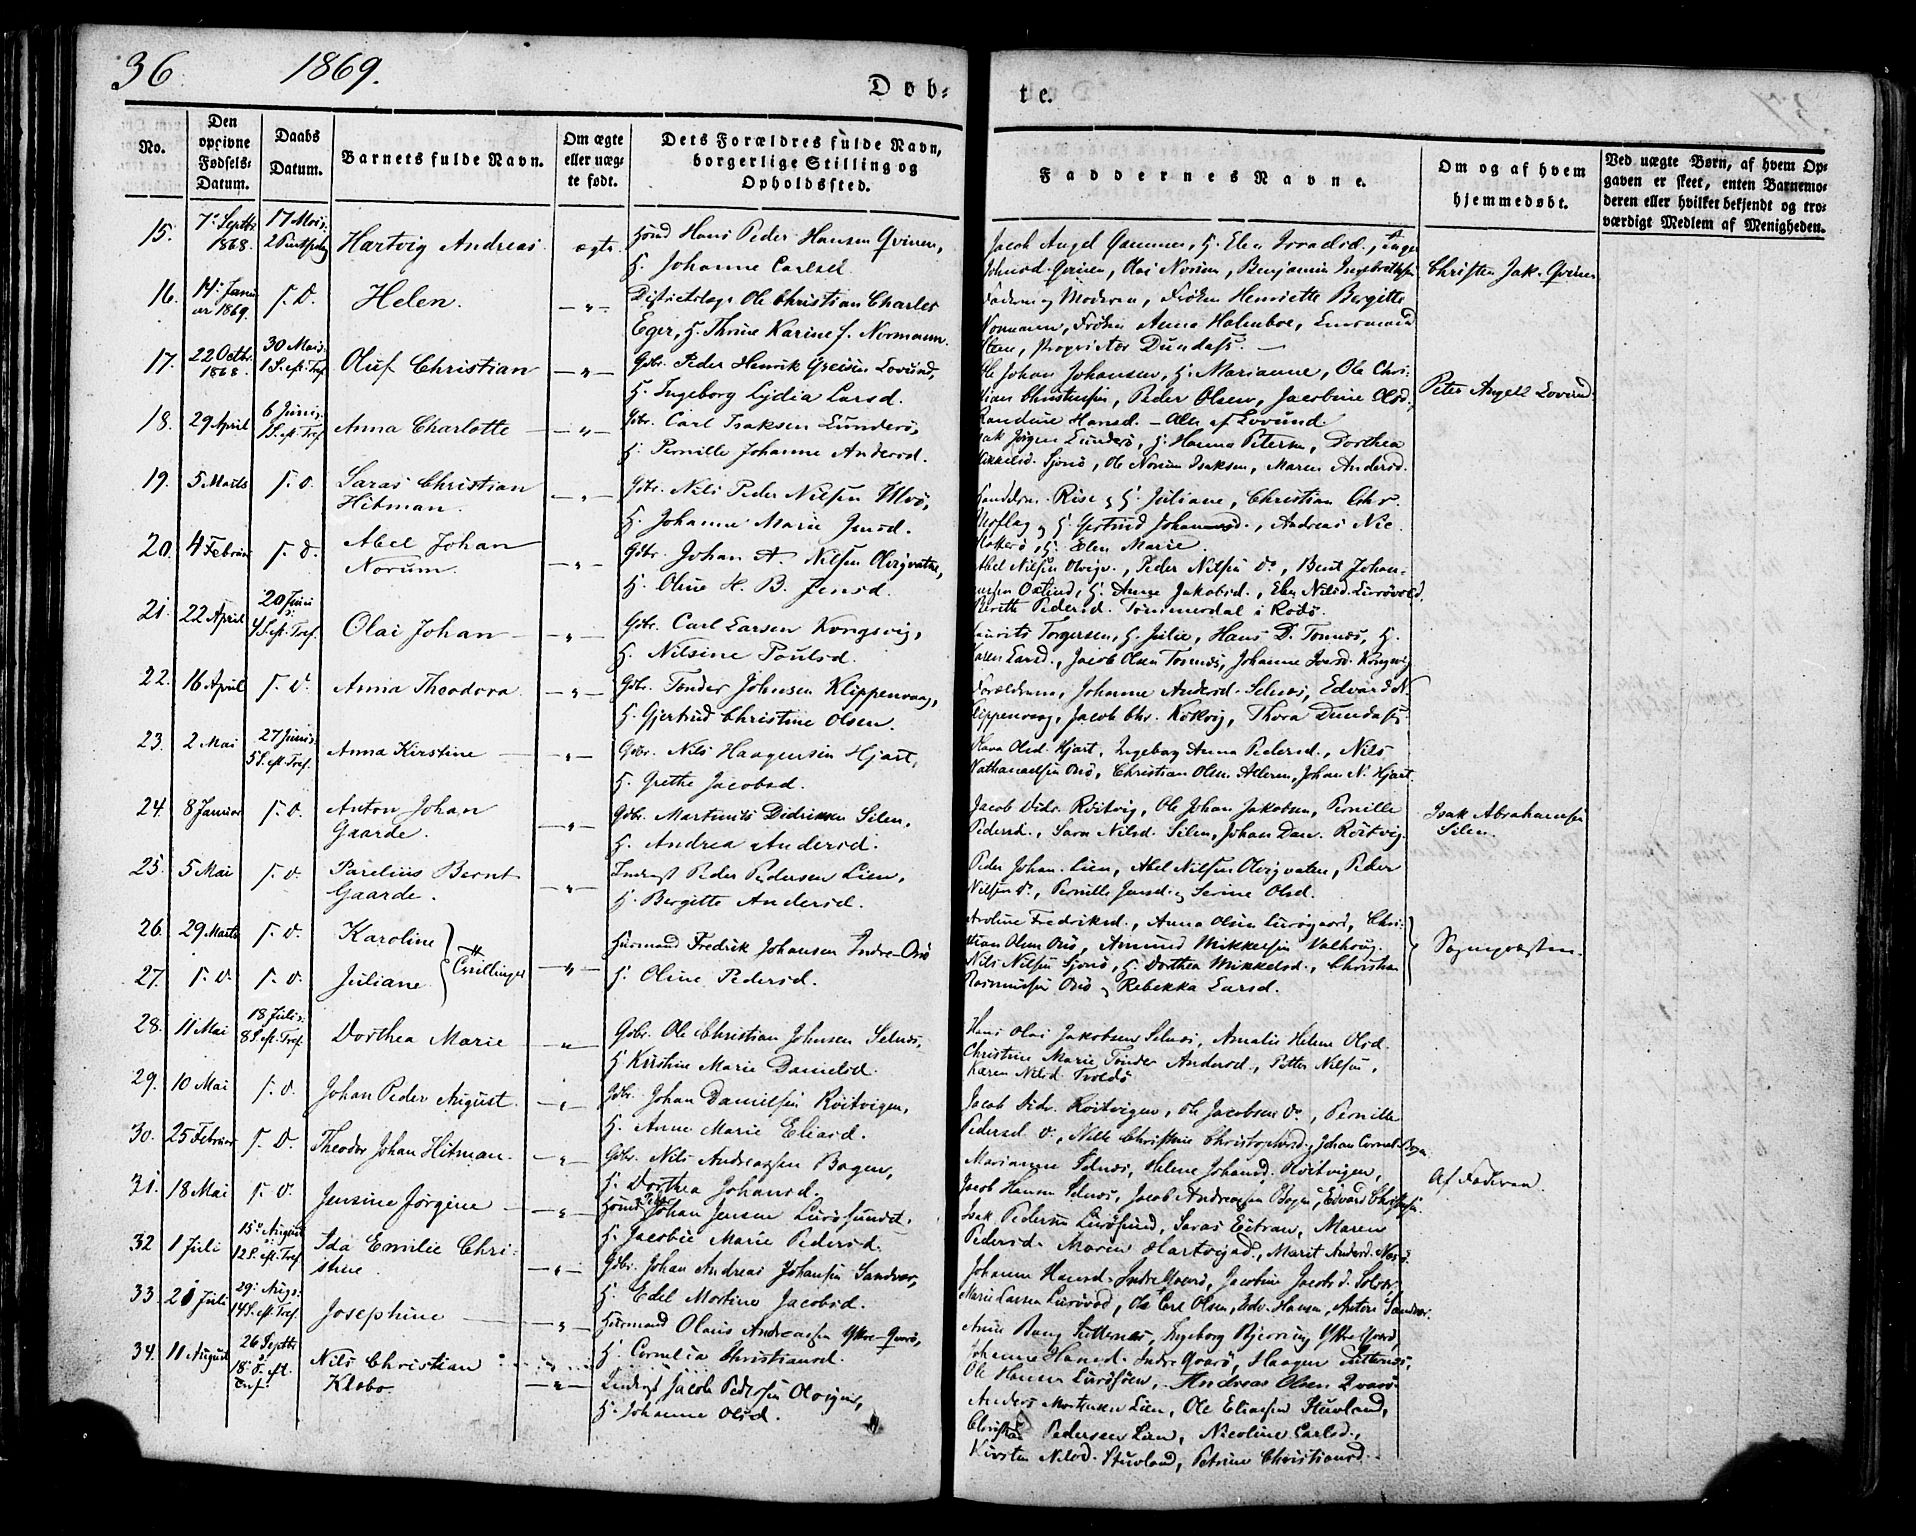 36 1869.
Døb-
te.
No.
Den
opgivne
Fødsels-
Datum.
Daabs
Datum.
Barnets fulde Navn.
Om ægte
eller uæg-
te født.
Dets Forældres fulde Navn,
borgerlige Stilling og
Opholdssted.
Faddernes Navne.
Om og af hvem
hjemmedøbt.
Ved uægte Børn, af hvem Op-
gaven er skeet, enten Barnemo-
deren eller hvilket bekjendt og tro-
værdigt Medlem af Menigheden.
15. 7. Septbr 1868. 17 Mai 2 Pintsedag Hartvig Andreas ægte Huusmd Hans Peder Hansen Qvinen,
H. Johanne Carlsd.
Jacob Angel
Johnsd. Qvinen, Olai Norum, Benjamin Ingebrethsen
Christen Jak. Qvinen
16. 14. Janu- ar 1869. s. D. Helen. -"- Districtslæge Ole Christian Charles
Eger, H. Thrine Karine f. Normann.
Faderen og Moderen, Frøken Henriette Bergitte
Normann, Frøken Anna Holmboe, Lensmand
Steen, Proprietær Dundass. —
17. 22 Octbr. 1868. 30 Mai: 1 S. eft. Tref. Oluf Christian -"- Gbr. Peder Henrik Greisen Lovund,
H. Ingeborg Lydia Larsd.
Ole Johan Johansen, H. Marianne, Ole Chri-
stian Christensen, Peder Olsen, Jacobine Olsd.,
Randine Hansd. - Alle af Lovund
Peter Angell Lovund.
18. 29 April 6 Juni: 2 S. eft. Tref. Anna Charlotte -"- Gbr. Carl Isaksen Lunderø,
H. Pernille Johanne Andersd.
Isak Jørgen Lunderø, H. Hanna Petersn, Dorthea
Mikkelsd. Sjonø, Ole Norum Isaksen, Maren Andersd.
19. 5 Marts s. D. Saras Christian
Hitman. -"- Gbr. Nils Peder Nilsen Ulvø,
H. Johanne Marie Jensd.
Handelsm. Rise og H. Juliane, Christian Chr.
og H. Gertrud Johannesd., Andreas Nic.
H. Elen Marie.
20. 4 Februar s. D. Abel Johan
Norum. -"- Gbr. Johan A. Nilsen Olvigvatne,
H. Oline H. B. Jensd.
Abel Nilsen Olvigv., Peder Nilsen do, Bent Johan-
nessen H. Anne Jakobsd., Elen Nilsd. Lurøvold,
Berith Pedersd. Tømmerdal i Rødø.
21. 22 April 20 Juni: 4 S. eft. Tref. Olai Johan -"- Gbr. Carl Larsen Kongsvig,
H. Nilsine Poulsd.
Laurits Torgersen, H. Julie, Hans D. Tonnes, H.
Karen Larsd., Jacob Olsen Tonnes, Johanne Iversd. Kongsvig
22. 16 April s. D. Anna Theodora. -"- Gbr. Tønder Johnsen Klippenvaag,
H. Gjertrud Christine Olsen.
Forældrene, Johanne Andersd. Selnæs, Edvard N.
Klippenvaag, Jacob Chr. Kokvig, Thora Dundass.
23. 2 Mai 27 Juni: 5 S. eft. Tref. Anna Kirstine -"- Gbr. Nils Haagensen Hjart,
H. Grethe Jacobsd.
Olsd. Hjart, Ingeborg Anna Pedersd., Nils
Nathanaelsen Onø, Christian Olsen Alderen, Johan N. Hjart
24. 8 Januar s. D. Anton Johan
Gaarde. -"- Gbr. Martinus Didriksen Silen,
H. Andrea Andersd.
Jacob Didr. Røitvig, Ole Johan Jakobsen, Pernille
Pedersd., Sara Nilsd. Silen, Johan Dan. Røitvig.
Isak Abrahamsen
Silen.
25. 5 Mai s. D. Parelius Bernt
Gaarde. -"- Inderst Peder Pedersen Lien,
H. Bergitte Andersd.
Peder Johan. Lien, Abel Nilsen Olvigvatne, Peder
Nilsen do, Pernille Jensd. og Serine Olsd.
26. 29 Marts s. D. Karoline
27. s. D. s. D. Juliane } Tvillinger -"- Huusmand Fredrik Johansen Indre-Onø
H. Oline Pedersd.
Karoline Fredriksd., Anna Olsen Lurøgaard, Chri-
stian Olsen Onø, Amund Mikkelsen Valhoug.
Nils Nilsen Sjonø, H. Dorthea Mikkelsd., Christian
Rasmussen Onø og Rebekka Larsd.
Sognepræsten.
28. 11 Mai 18 Juli: 8 S. eft. Tref. Dorthea Marie -"- Gbr. Ole Christian Johnsen Selnæs,
H. Kirstine Marie Danielsd.
Hans Olai Jakobsen Selnæs, Amalie Helene Olsd.
Christine Marie Tønder Andersd., Petter Nilsen,
Karen Nilsd.
29. 10 Mai s. D. Johan Peder August. -"- Gbr. Johan Danielsen Røitvigen,
H. Anne Marie Eliasd.
Jacob Didr. Røitvigen, Ole Jacobsen do, Pernille
Pedersd. do, Nille Christine Christophersd., Johan Cornel. Bogen
30. 25 Februar s. D. Theodor Johan Hitman. -"- Gbr. Nils Andreassen Bogen,
H. Dorthea Johansd.
Marianne Selnæs, Helene Johansd. Røitvigen,
Jacob Hansen Selnæs, Jacob Andreassen Bogen, Edvard Christensen.
Af Faderen.
31. 18 Mai s. D. Jensine Jørgine -"- Huusmd Peder Johan Jensen Lurøsundet,
H. Jacobie Marie Pedersd.
Isak Pedersen Lurøsund, Saras Eitran, Maren
Pedersd. Maren Hartvigsd., Marit Andersd.
32 1 Juli 15 August: 12 S. eft. Tref. Ida Emilie Chri-
stine. -"- Gbr. Johan Andreas Johansen Sandvær,
H. Edel Martine Jacobsd.
Johanne Hansd. Indre Qvarø, Jacobine Jacobsd.
Marie Larsen Lurøvold, Ole Carl Olsen, Edv. Hansen, Anton Sandvær.
33. 21 Juli 29. Aug: 14 S. eft. Tref. Josephine -"- Huusmand Olaus Andreassen Ytre-Qvarø,
H. Cornelia Christiansd.
Anne Bang Ingeborg Bjerring Ytre Qvarø,
Johanne Hansd. Indre Qvarø, Haagen
Ole Hansen Lurøsøen, Andreas Olsen Qvarø.
34. 11 August 26 Septbr 18. S. eft. Tref. Nils Christian
Klobo. -"- Inderst Jacob Pedersen Olvigen,
H. Johanne Olsd.
Anders Mortensen Lien, Ole Eliassen Stuvland,
Christian Pedersen Lien, Nicoline Carlsd.,
Kirsten Nilsd. Stuvland, Petrine Christiansd.